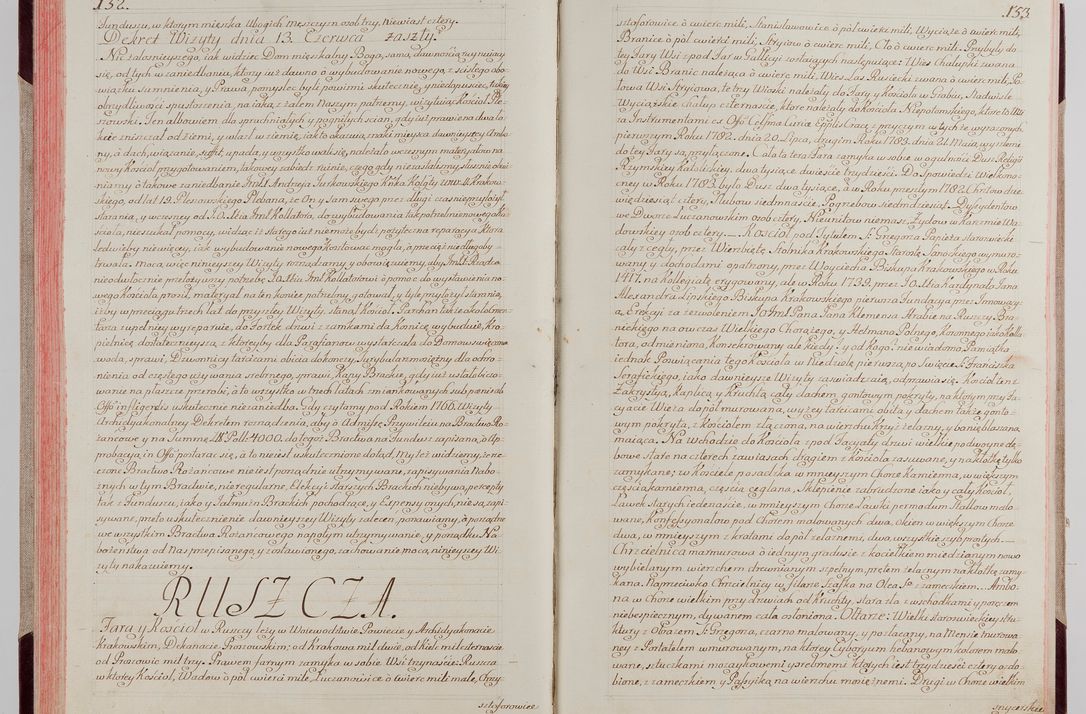 152.
Funduszu, w ktorym mieszka Ubogich męszczyzn osob trzy, niewiast cztery.
Dekret Wizyty dnia 13. Czerwca zaszły.
Nic żałosnieyszego, iak widzieć Dom mieszkalny Boga, samą dawnością
się, od tych w zaniedbaniu, ktorzy iuż dawno o wybudowanie nowego, z scisłego obo-
wiązku sumnienia, y Prawa, pomysleć byli powinni skutecznie, y niedopuszczać
obrzydliwosci spustoszenia, na iaką z żalem Naszym patrzemy, wizytuiąc Kościoł Ple-
szowski. Ten albowiem dla spruchniałych y pognilych scian, gdy iuż prawie na dwa ło-
kcie zniszczał od ziemi, y wlazł w ziemię, iak to okazuią znaki mieysca dawnieyszey Ambo-
ny, à dach, wiązanie, sufit, upada, y wszystko wali się, należało wczesnym materyałow na
nowy Kościoł przygotowaniem, takowey zabiedz ruinie, czego gdy nie ustało,
niamy ô takowe zaniedbanie Jmć X. Andrzeia Jurkowskiego Knka Kolgty WW. SS. Krakow-
skiego, od lat 19. Pleszowskiego Plebana, że On y sam swego przez długi czas nieprzyłożył
starania, y wczesney od JO. Xcia Jmć Kollatora, do wybudowania tak potrzebnie nowego Ko-
ścioła, nieszukał pomocy, widząc iż starego iuż niemoże bydz pożyteczna reparacya, ktora
ledwieby niewięcey, iak wybudowanie nowego kosztować mogła, à przecięż niedługoby
trwała. Mocą więc ninieyszey Wizyty rozrządzamy, y obowiązuiemy, aby Jmć X. Rządca
nieodwłocznie przełożywszy potrzebę Xciu Jmć Kollatorowi ô pomoc do wystawienia no-
wego Kościoła prosił, materyał na ten koniec potrzebny, gotował, y tyle przyłożył starania,
iżby w przeciągu trzech lat do przyszłey Wizyty, stanął Kościoł. Parkan także około Cmen-
tarza upadły wyreperuie, do Fortek drzwi z zamkami da, Kośnicę wybuduie, Kro-
pielnicę dostateczнieyszą, z ktoreyby dla Parafianow wystarczała do Domow swięcona
woda, sprawi. Dzwonicy tarcicami obicia dokończy. Turybularz mosiężny dla ochro-
nienia od częstego używania srebrnego sprawi, Kapy Brackie, gdy iuż ustało bico-
wanie na płaszcze przerobi, à to wszystko w trzech latach zmiankowanych sub poenis ab
Offo infligendis uskutecznić niezaniedba. Gdy czytamy pod Rokiem 1766. Wizyty
Archidyakonalney Dekretem rozrządzenia, aby ô Admissę Przywileiu na Bractwo Ro-
żańcowe y na Summę Zł. Poll. 4000. do tegoż Bractwa na Fundusz zapisaną, ô Ap-
probacyą in Offo postarać się, à to nieiest uskutecznione dotąd, My też widziemy, że rze-
czone Bractwo Rożańcowe nieiest porządnie utrzymywane, zapisywania Nabo-
żnych w tym Bractwie, nieregularne, Elekcyi starszych Brackich niebywa, percepty
tak z Funduszu, iako y Jałmużn Brackich pochodzące, y Expensy z nich, nie są zapi-
sywane, przeto uskutecznienie dawnieyszey Wizyty zaleceń ponawiamy, ô porządne
we wszystkim Bractwa Rożańcowego napotym utrzymywanie, y porządku Na-
bożeństwa od Nas przepisanego, y zostawionego, zachowanie mocą ninieyszey Wi-
zyty nakazuiemy.
RUSZCZA.
Fara y Kościoł w Ruszczy leży w Woiewodztwie, Powiecie y Archidyakonacie
Krakowskim, Dekanacie Proszowskim; od Krakowa mil dwie, od Kielc mil czternaście
od Proszowic mil trzy. Prawem farnym zamyka w sobie. Wsi trzynaście: Ruszcza
w ktorey Kościoł, Wadow ô poł ćwierć mili, Łuczanowice ô ćwierć mili małe, Krzy-
sztoforowice
153
sztoforowice ô ćwierć mili, Stanisławowice ô poł ćwierć mili, Wyciąże ô ćwierć mili,
Branice ô poł ćwierci mili, Stryiow ô ćwierć mili, Cło ô ćwierć mili. Przybyły do
tey Fary Wsi z pod Far w Gallicyi zostaiących następuiące: Wieś Chałupki zwana
do Wsi Branic należąca ô ćwierć mili, Wieś Las Rusiecki zwana ô ćwierć mili, Po-
łowa Wsi Stryiowa, te trzy Wioski należały do Fary y Kościoła w Grabiu, Nadwiśle
Wyciąskie chałup czternaście, ktore należały do Kościoła Niepołomskiego, ktore to Wsi
za Instrumentami ex Offo Celsma Curiae Epplis Crac: przyszłym w tych że wyrażonych
pierwszym Roku 1782. dnia 20. Lipca, drugim Roku 1783. dnia 24. Maia, wyszłemi
do tey Fary są przyłączone. Cała ta teraz Fara zamyka w sobie w ogulności Dusz Religii
Rzymskiey Katolickiey dwa tysiące dwieście trzydzieści. Do Spowiedzi Wielkano-
cney w Roku 1783. było Dusz dwa tysiące, à w Roku przeszłym 1782. Chrztow dzie-
więdziesiąt cztery, Slubow siedmnaście, Pogrzebow siedmdziesiąt. Dyssydentow
we Dworze Łuczanowskim osob cztery, Nieunitow niemasz, Zydow w Karczmie Wa-
dowskiey osob cztery. Kościoł pod Tytułem S. Grzegorza Papieża staroswiecki
cały z cegły, przez Wierzbiętę Stolnika Krakowskiego, Starostę Sanockiego wymuro-
wany y dochodami opatrzony, przez Woyciecha Biskupa Krakowskiego w Roku
1417. na Kollegiatę erygowany, ale w Roku 1739. przez JO. Xcia Kardynała Jana
Alexandra Lipskiego Biskupa Krakowskiego pierwsza Fundacya przez Innowacy-
ą, Erekcyi za zezwoleniem JO Jmć Pana Jana Klemensa Hrabie na Ruszczy Bra-
nickiego na owczas Wielkiego Chorążego, y Hetmana Polnego, Koronnego iako Kolla-
tora, odmieniona, Konsekrowany, ale kiedy? y od Kogo? niewiadomo. Pamiątka
iednak Poswiącania tego Kościoła w Niedzielę pierwszą po Swięcie S. Franciszka
Serafickiego, iako dawnieysze Wizyty zaswiadczaią, odprawia się. Kościoł tenże
Zakrystya, Kaplica, y Kruchta cały dachem gontowym pokryty, na ktorym przy Fa-
cyacie Wieża do poł murowana, wyżey tarcicami obita, y dachem także gonto-
wym pokryta, z Kościołem złączona, na wierzchu Krzyż żelazny, y banię blaszaną
maiąca. Na wchodzie do Kościoła z pod Facyaty drzwi wielkie podwoyne dę-
bowe stare na czterech zawiasach drągiem z Kościoła zasuwane, y na kłotkę tylko
zamykane; w Kościele posadzka w mnieyszym Chorze kamienna, w większym
częścią kamienna, częścią ceglana, Sklepienie zabrudzone iako y cały Kościoł,
Ławek starych iedenaście, w mnieyszym Chorze Ławki per modum Stallow malo-
wane, Konfessyonałow pod Chorem malowanych dwa. Okien w większym Chorze
dwa, w mnieyszym z kratami do poł żelaznemi, dwa, wszystkie szyb prostych.
Chrzcielnica marmurowa ô iednym gradusie z kociełkiem miedzianym nowo
wybielanym wierzchem drewnianym szpetnym, prętem żelaznym na kłotkę zamy-
kana. Naprzeciwko Chrzcielnicy w ścianie Szafka na Olea Sa z zameczkiem. Ambo-
na w Chorze wielkim przy drzwiach od Kruchty, stara zła z wschodkami y poręczem
niebespiecznym, dywanem cała osłoniona. Ołtarze: Wielki staroswieckiey stru-
ktury z Obrazem S. Grzegorza, czarno malowany, y pozłacany, na Mensie murowa-
ney z Portatelem wmurowanym, na ktorey Cyboryum hebanowym kolorem malo-
wane, sztuczkami mozaykowemi y srebrnemi ktorych iest trzydzieści cztery ozdo-
bione, z zameczkiem y Passyiką na wierzchu mosiężnemi. Drugi w Chorze wielkim
snycerskiey